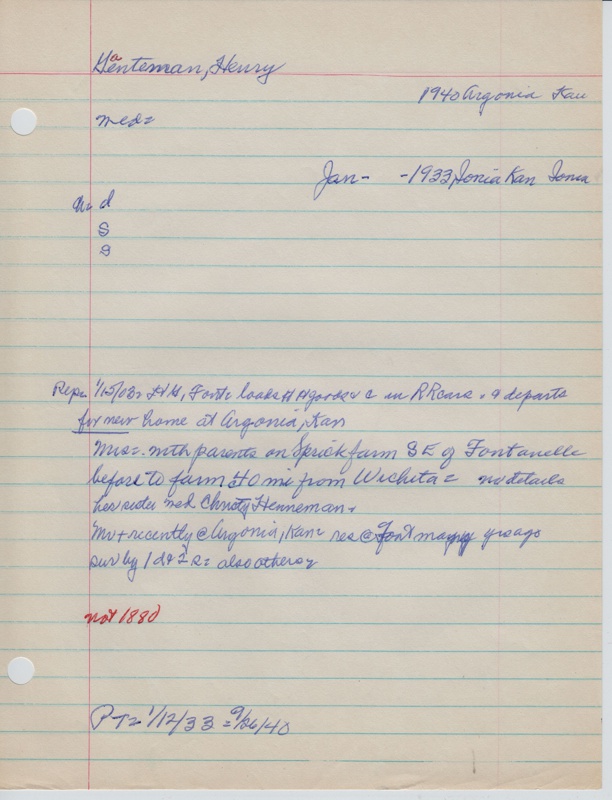 Genteman, Henry
a
1940 Argonia Kan
med=
Jan - -1933, Ionia Kan Ionia
d
S
Repr 1/15/03= Font= loads H Hgoods & c in RRcars & departs
for new home at Argonia, Kan
Mrs= with parents on Sprick farm SE of Fontanelle
before to farm 40 mi from Wichita = no details
her sister med Christy Henneman.
Mr + recently @ Argonia, Kan= res @ Font many yrs ago
sur by 1 d & 2 s= also others
not 1880
PT= 1/12/33 = 9/26/40